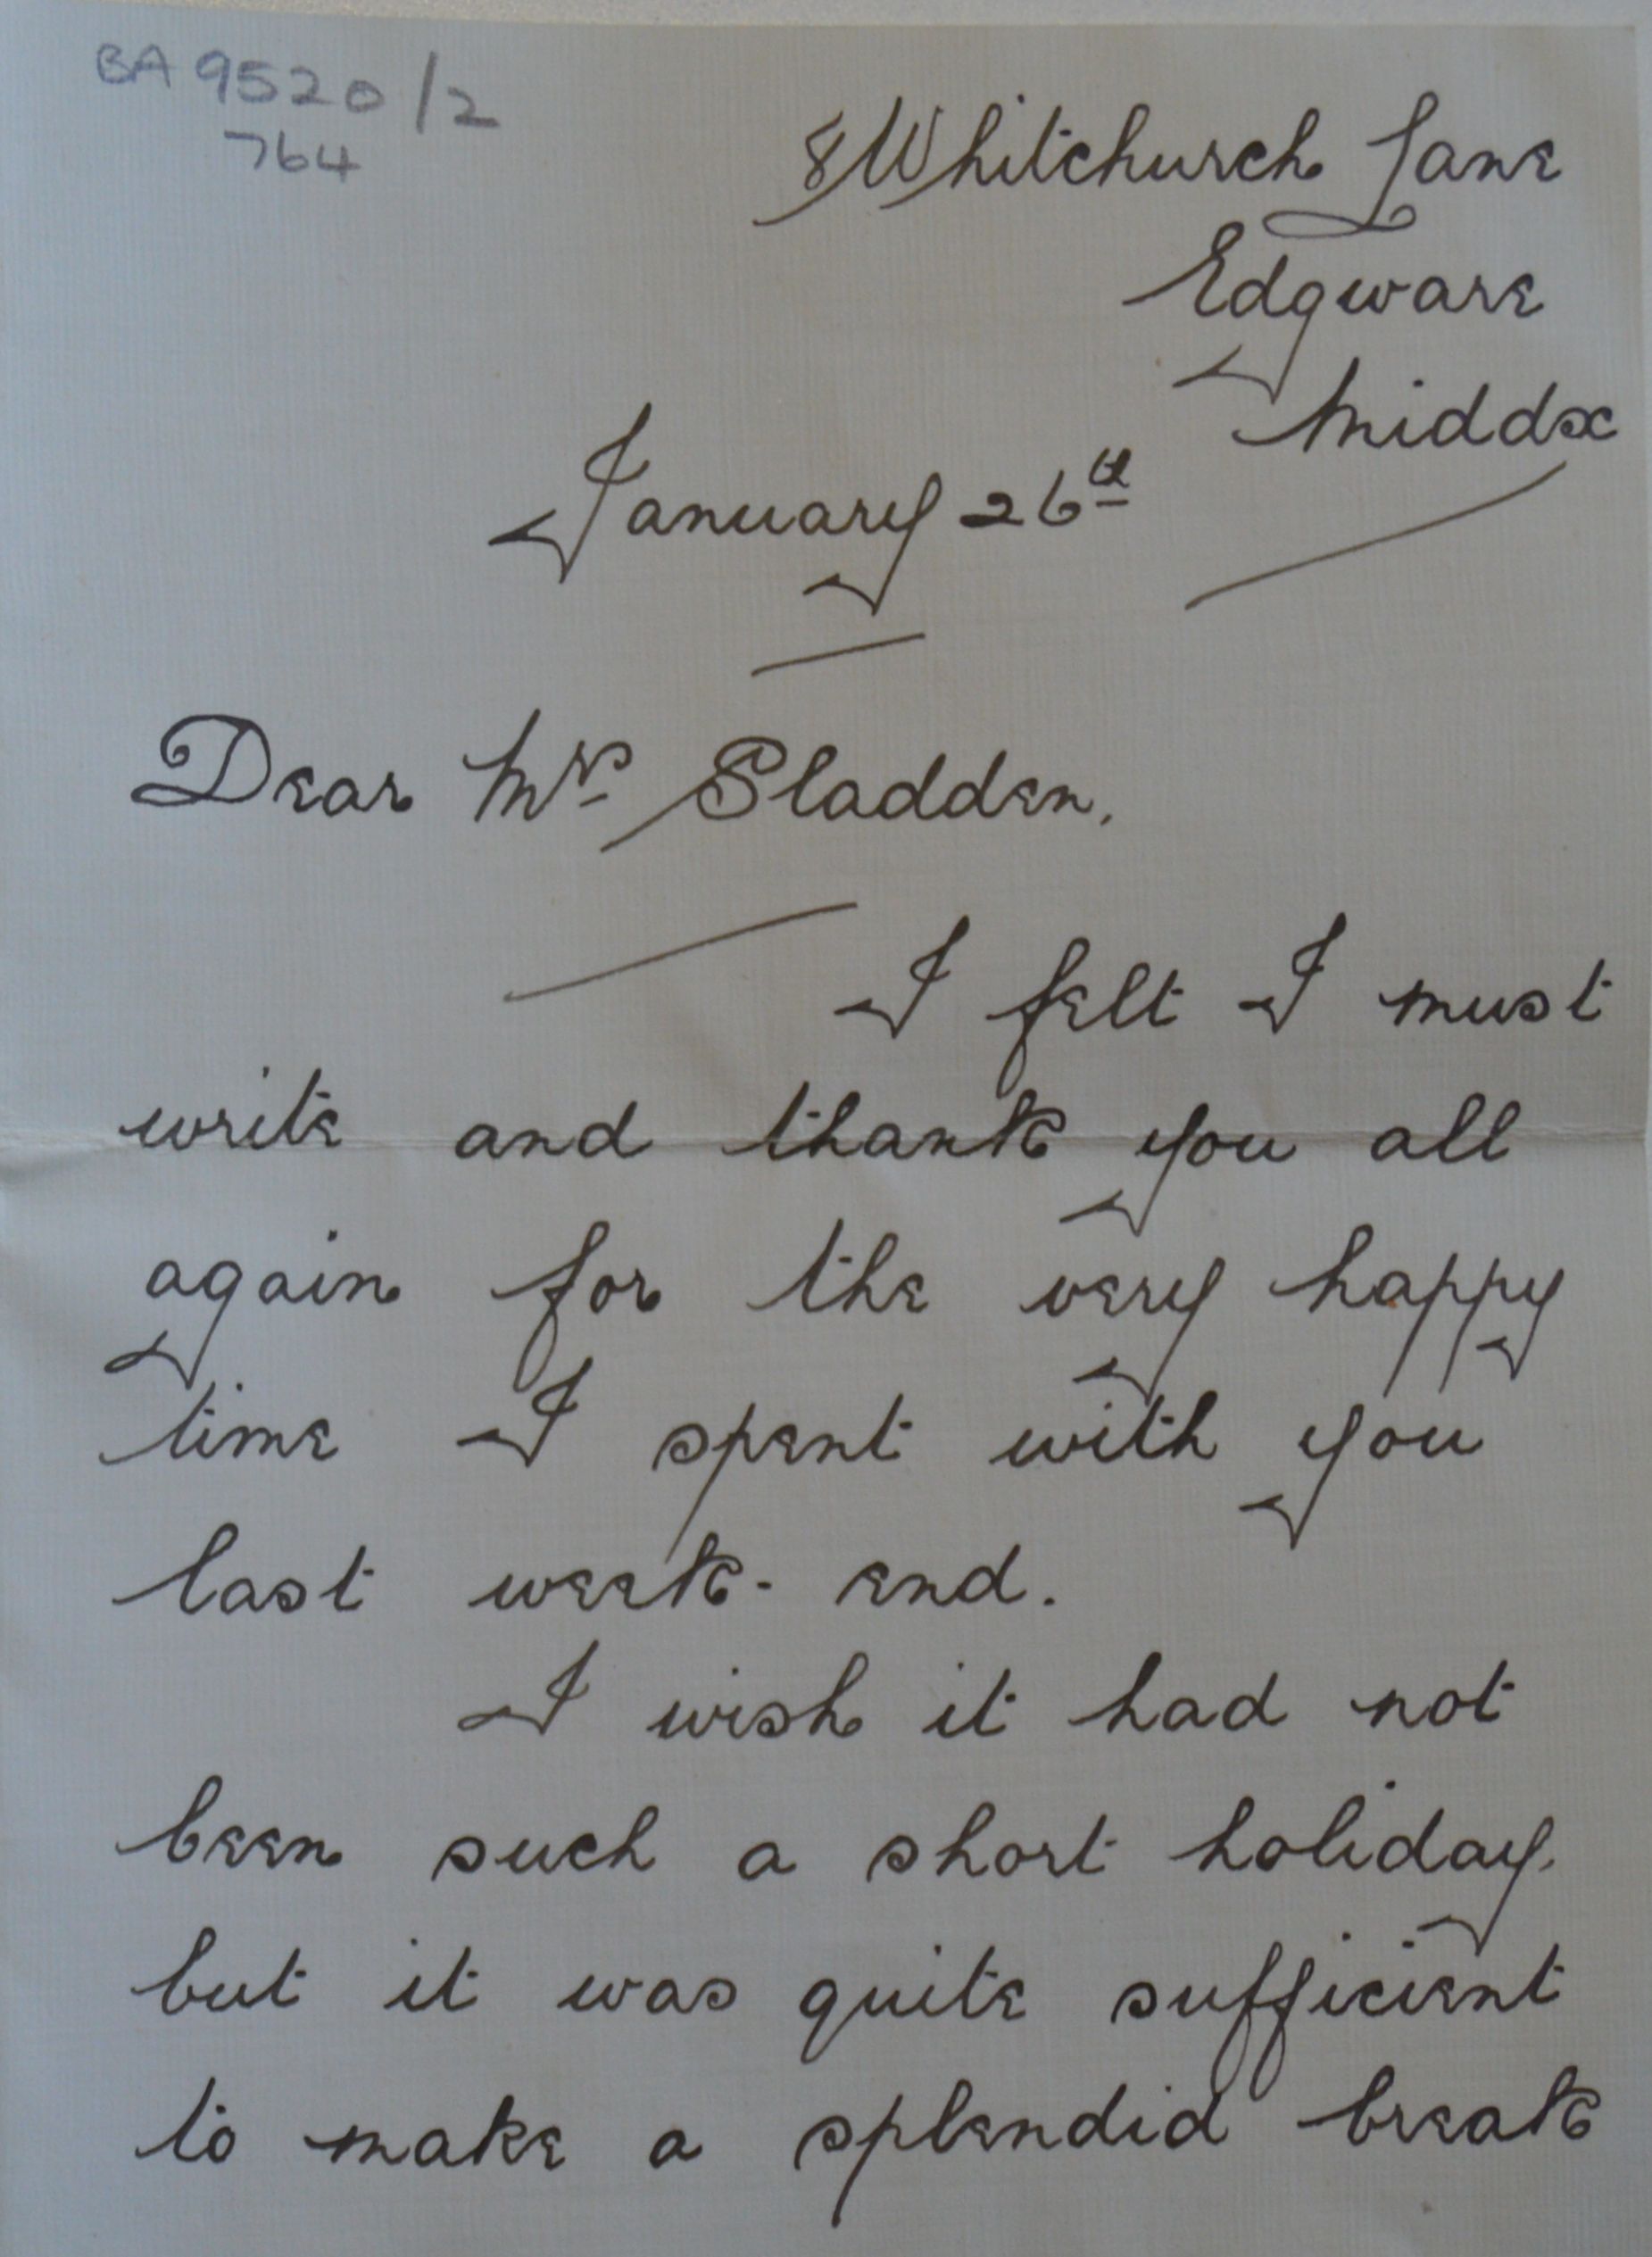 BA 9520/2
764
8 Whitchurch Lane
Edgware
Middx
January 26th
Dear Mrs Sladden,
I felt I must
write and thank you all
again for the very happy
time I spent with you
last week-end.
I wish it had not
been such a short holiday,
but it was quite sufficient
to make a splendid break